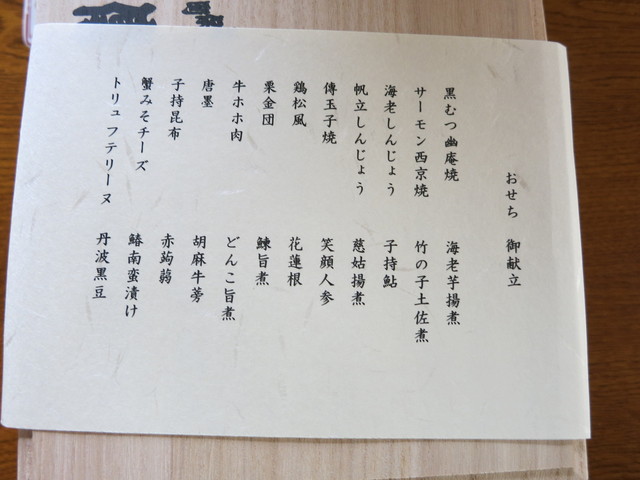 おせち 御献立
黒むつ幽庵焼 海老芋揚煮
サーモン西京焼 竹の子土佐煮
海老しんじょう 子持鮎
帆立しんじょう 慈姑揚煮
傳玉子焼 笑顔人参
鶏松風 花蓮根
栗金団 鰊旨煮
牛ホホ肉 どんこ旨煮
唐墨 胡麻牛蒡
子持昆布 赤蒟蒻
蟹みそチーズ 鰆南蛮漬け
トリュフテリーヌ 丹波黒豆